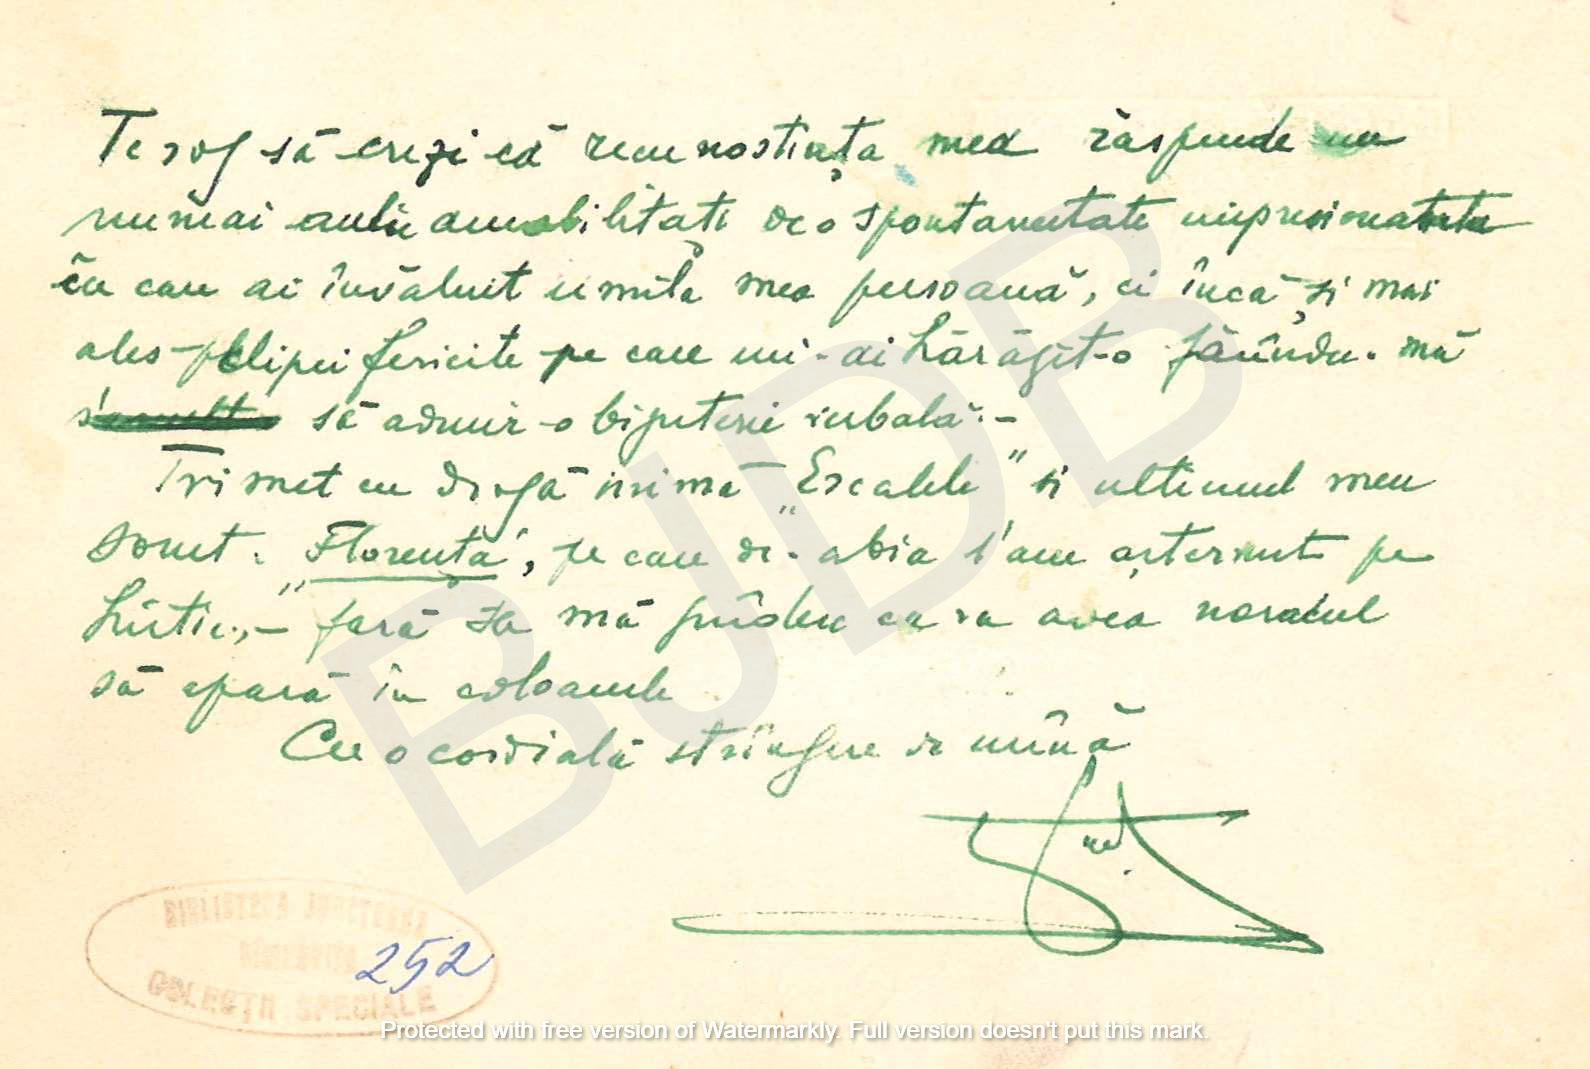 Te rog să crezi că recunostința mea răspunde nu
numai amabilități de o spontaneitate
cu care ai învăluit umila mea persoană, ci încă și mai
ales clipei fericite pe care mi-ai hărăzit-o făcîndu-mă
să admir o bijuterie verbală.-
Trimet cu dragă inimă „Escalele" si ultimul meu
sonet. „Florența", pe care de-abia l'am așternut pe
hîrtie,- fară să mă gîndesc ca va avea norocul
să apară în coloanele
Cu o cordială strîngere de mînă
BIBLIOTECA JUDETEANA
DÎMBOVIȚA
252
COLECȚII SPECIALE
BJDB
Protected with free version of Watermarkly. Full version doesn't put this mark.